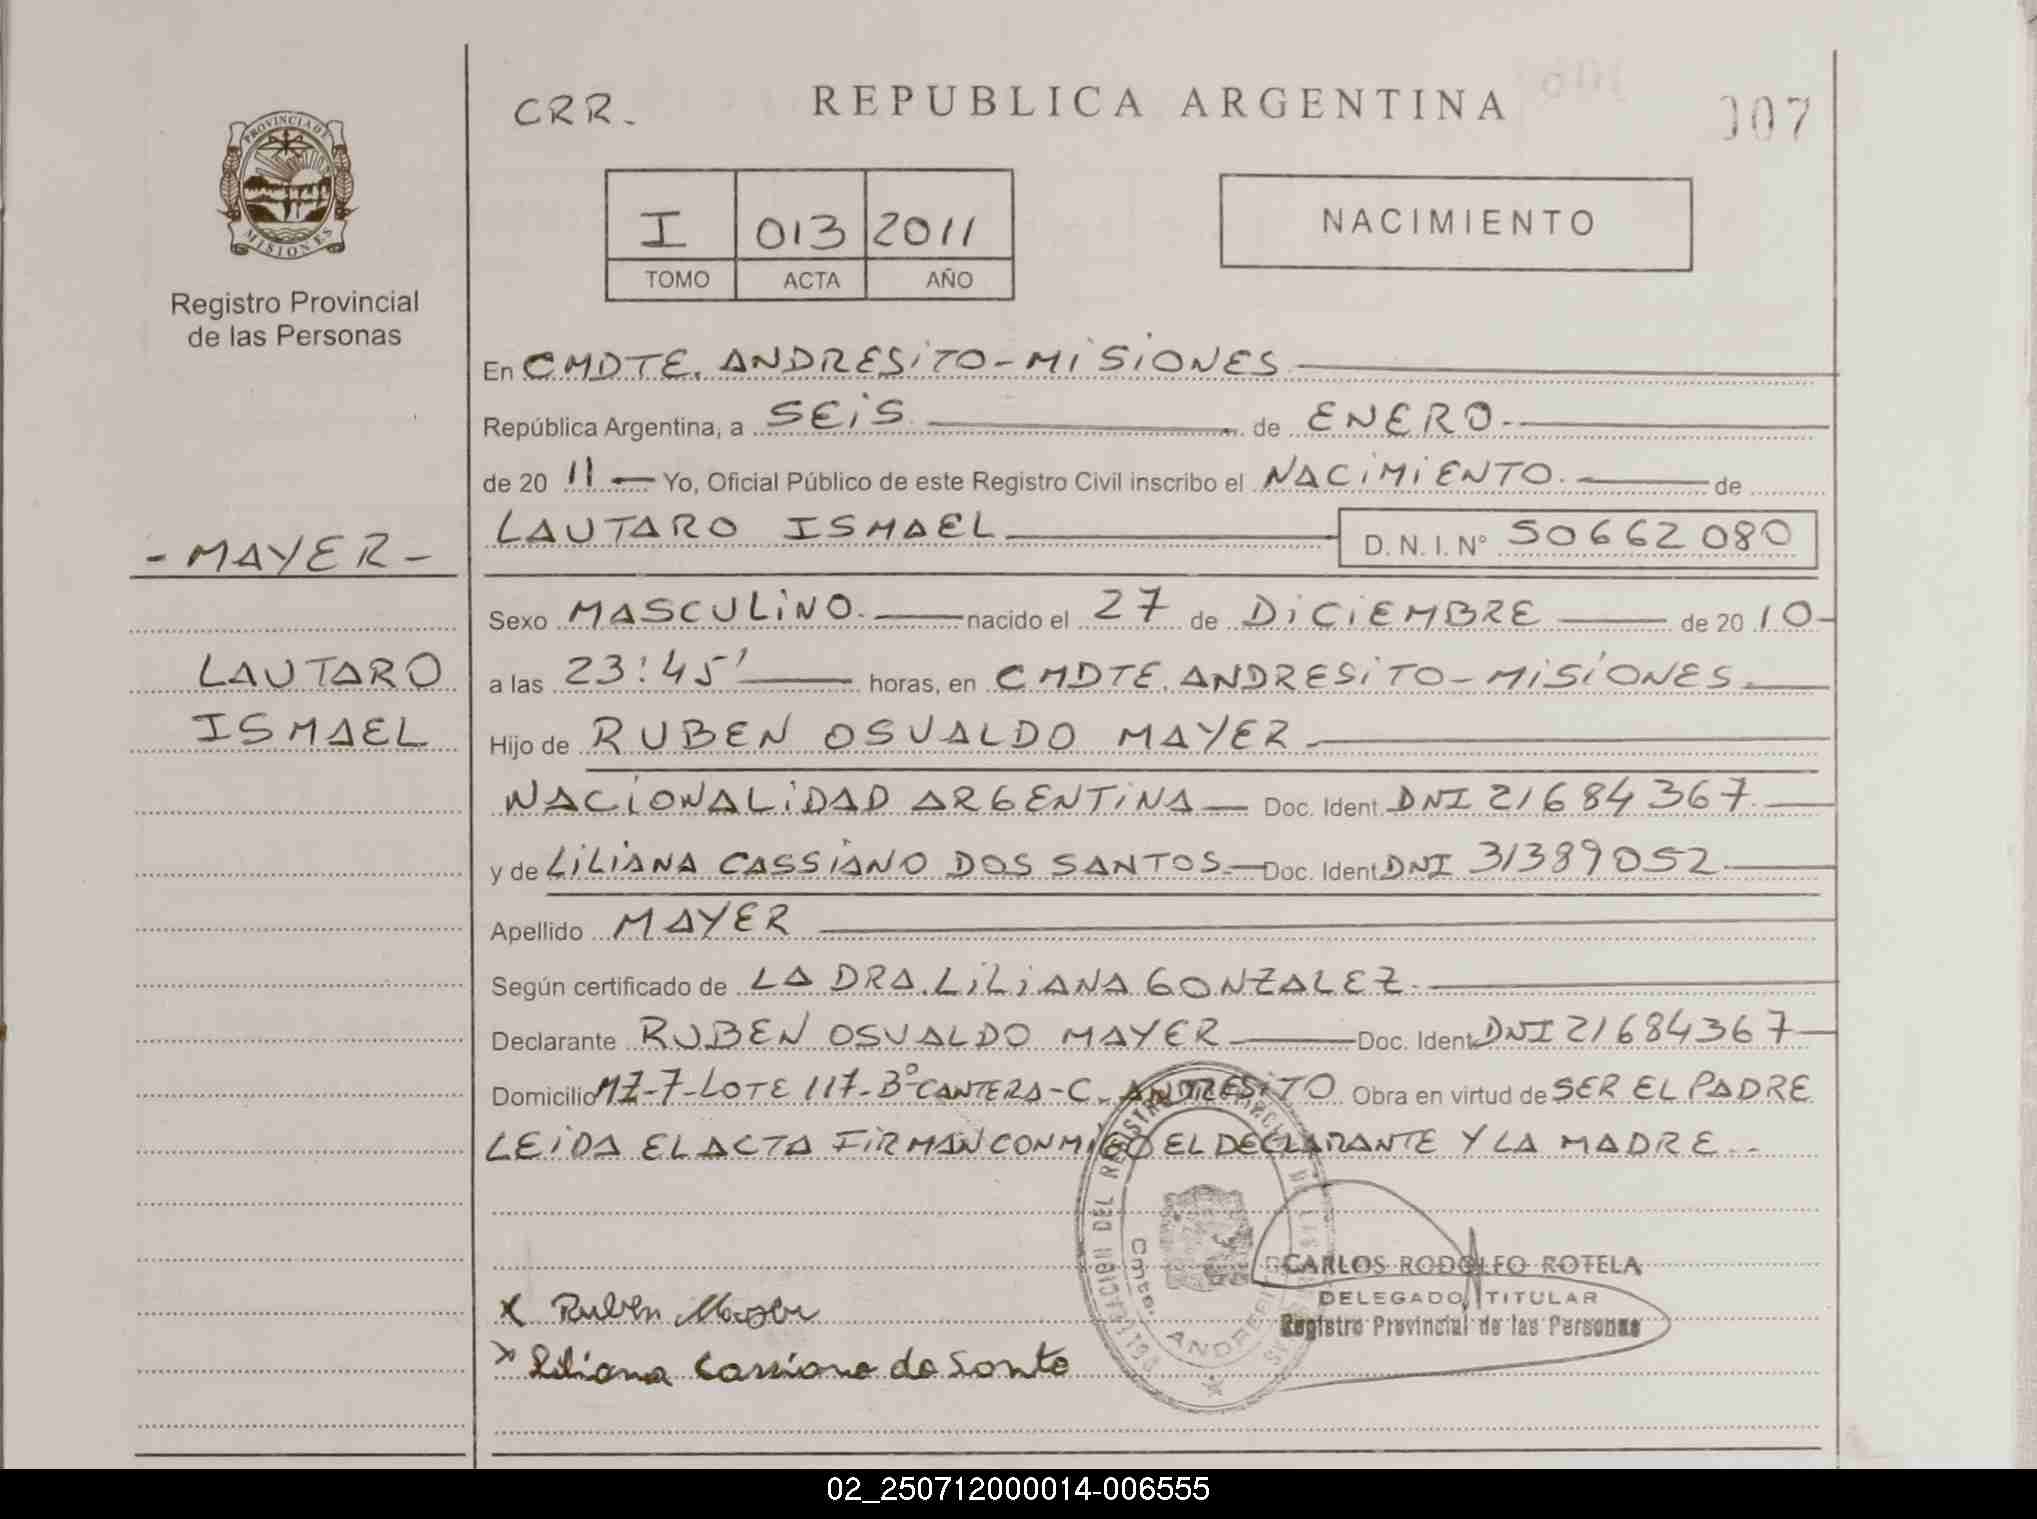 CRR.
REPUBLICA ARGENTINA
007
PROVINCIA DE
MISIONES
Registro Provincial
de las Personas
I 013 2011
TOMO ACTA AÑO
NACIMIENTO
En CMDTE. ANDRESiTO-MiSiONES
República Argentina, a SEiS de ENERO.
de 20 11 Yo, Oficial Público de este Registro Civil inscribo el NACiMiENTO. de
LAUTARO ISMAEL D. N. I. N° 50662080
-MAYER-
LAUTARO
ISMAEL
Sexo MASCULiNO. nacido el 27 de DiCiEMBRE de 20 10-
a las 23:45' horas, en CMDTE. ANDRESiTO-MiSiONES.
Hijo de RUBEN OSVALDO MAYER
NACiONALiDAD ARGENTiNA Doc. Ident. DNI 21684367
y de LiLiANA CASSiANO DOS SANTOS. Doc. Ident DNI 31389052
Apellido MAYER
Según certificado de LA DRA. LiLiANA GONZALEZ.
Declarante RUBEN OSVALDO MAYER Doc. Ident DNI 21684367
Domicilio MZ-7-LOTE 117-B° CANTERA-C. ANDRESiTO. Obra en virtud de SER EL PADRE
LEiDA EL ACTA FiRMAN CONMiGO EL DECLARANTE Y LA MADRE.-
CARLOS RODOLFO ROTELA
DELEGADO TITULAR
Registro Provincial de las Personas
DELEGACION DEL REGISTRO PROVINCIAL DE LAS
Cmte. ANDRESI
x Ruben Mayer
x Liliana Cassiano do Santo
02_250712000014-006555